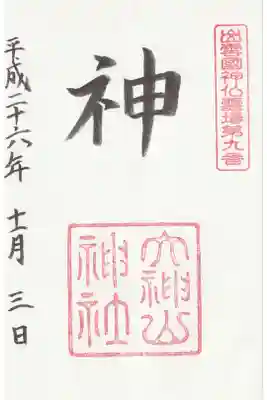 出雲國神仏霊場第九番
神
大神山
神社
平成二十六年 十一月 三日